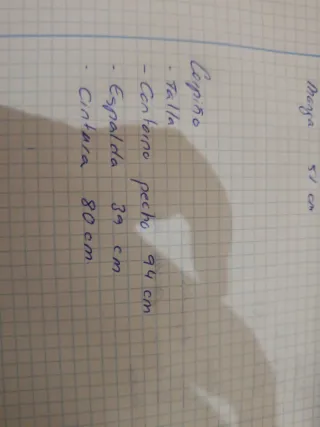 Manga 51 cm
Corpiño
- Talla
- Contorno pecho 94 cm
- Espalda 39 cm
- Cintura 80 cm